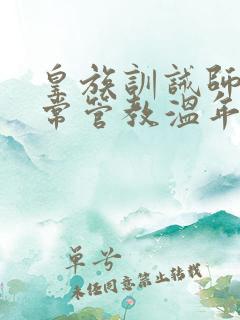 皇族訓誡師
常管教溫年
單号
未经同意禁止转载